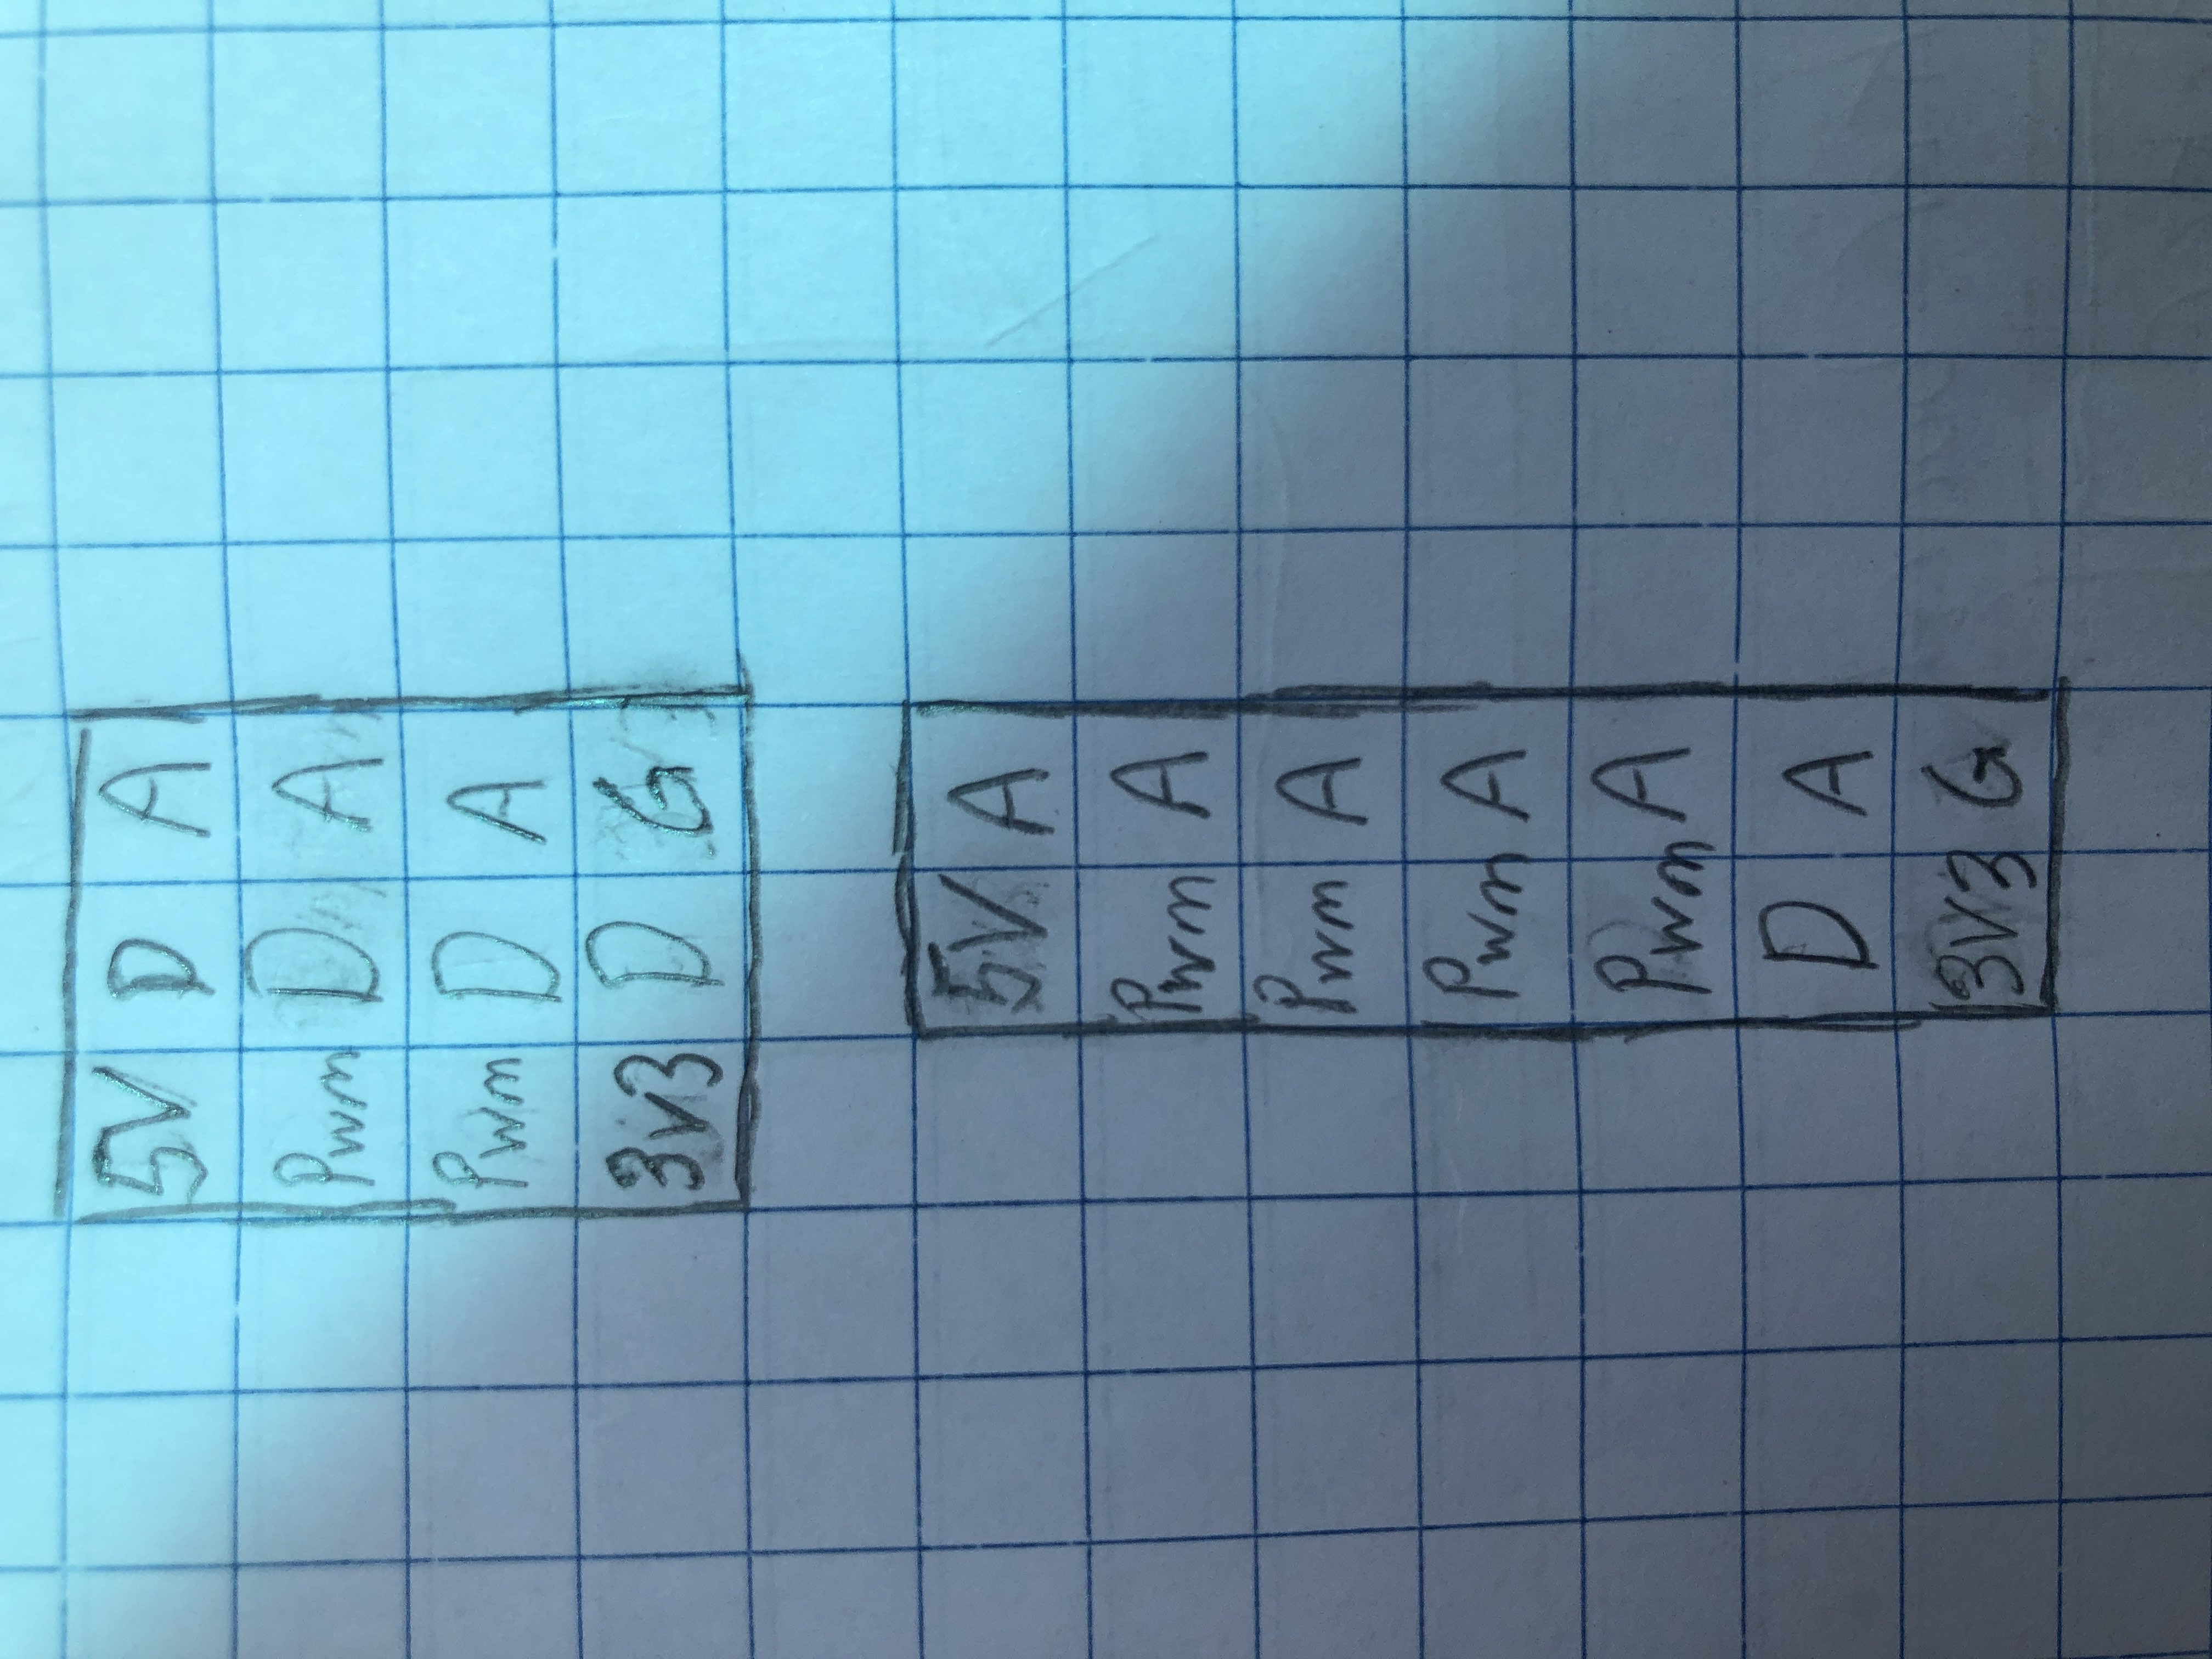 5V D A
Pwm D A
Pwm D A
3v3 D G
5V A
Pwm A
Pwm A
Pwm A
Pwm A
D A
3V3 G